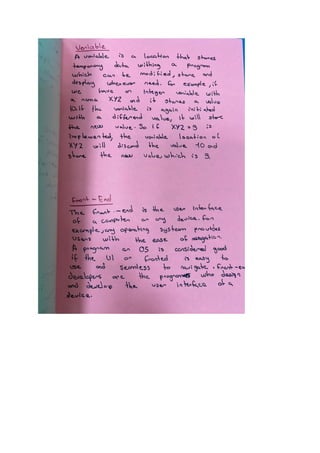 Variable
A variable is a location that stores
temporary data withing a program
which can be modified, store and
display whenever need. For example, if
we have an Integer variable with
a name XYZ and it stores a value
10. If the variable is again initiated
with a different value, it will store
the new value. So if XYZ = 9 is
implemented, the variable location of
XYZ will discard the value 10 and
store the new value, which is 9.
Front-End
The front-end is the user Interface
of a computer or any device. For
example, any operating system provides
users with the ease of navigation.
A program or OS is considered good
if the UI or fronted is easy to
use and seemless to navigate. Front-en
developers are the programmers who design
and develop the user interface of a
device.